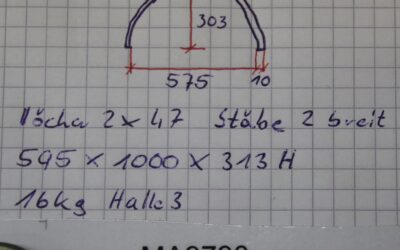 303
575 10
Löcha 2 x 47 Stäbe 2 breit
595 x 1000 x 313 H
16kg Halle 3